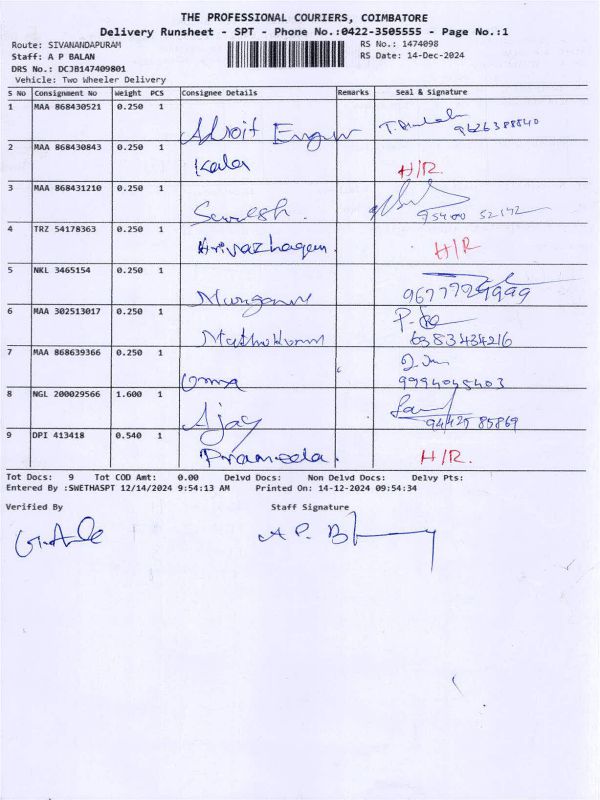 THE PROFESSIONAL COURIERS, COIMBATORE
Delivery Runsheet - SPT - Phone No.:0422-3505555 - Page No.:1
Route: SIVANANDAPURAM RS No.: 1474098
Staff: A P BALAN RS Date: 14-Dec-2024
DRS No.: DCJB147409801
Vehicle: Two Wheeler Delivery
S No Consignment No Weight PCS Consignee Details Remarks Seal & Signature
1 MAA 868430521 0.250 1 Adroit 9626388840
2 MAA 868430843 0.250 1 Kala H/R.
3 MAA 868431210 0.250 1 Suresh. 95400 52142
4 TRZ 54178363 0.250 1 H/R
5 NKL 3465154 0.250 1 9677729999
6 MAA 302513017 0.250 1 6383434216
7 MAA 868639366 0.250 1 Uma 9994045403
8 NGL 200029566 1.600 1 Ajay 94425 85869
9 DPI 413418 0.540 1 Prameela. H/R.
Tot Docs: 9 Tot COD Amt: 0.00 Delvd Docs: Non Delvd Docs: Delvy Pts:
Entered By :SWETHASPT 12/14/2024 9:54:13 AM Printed On: 14-12-2024 09:54:34
Verified By Staff Signature
A P. B